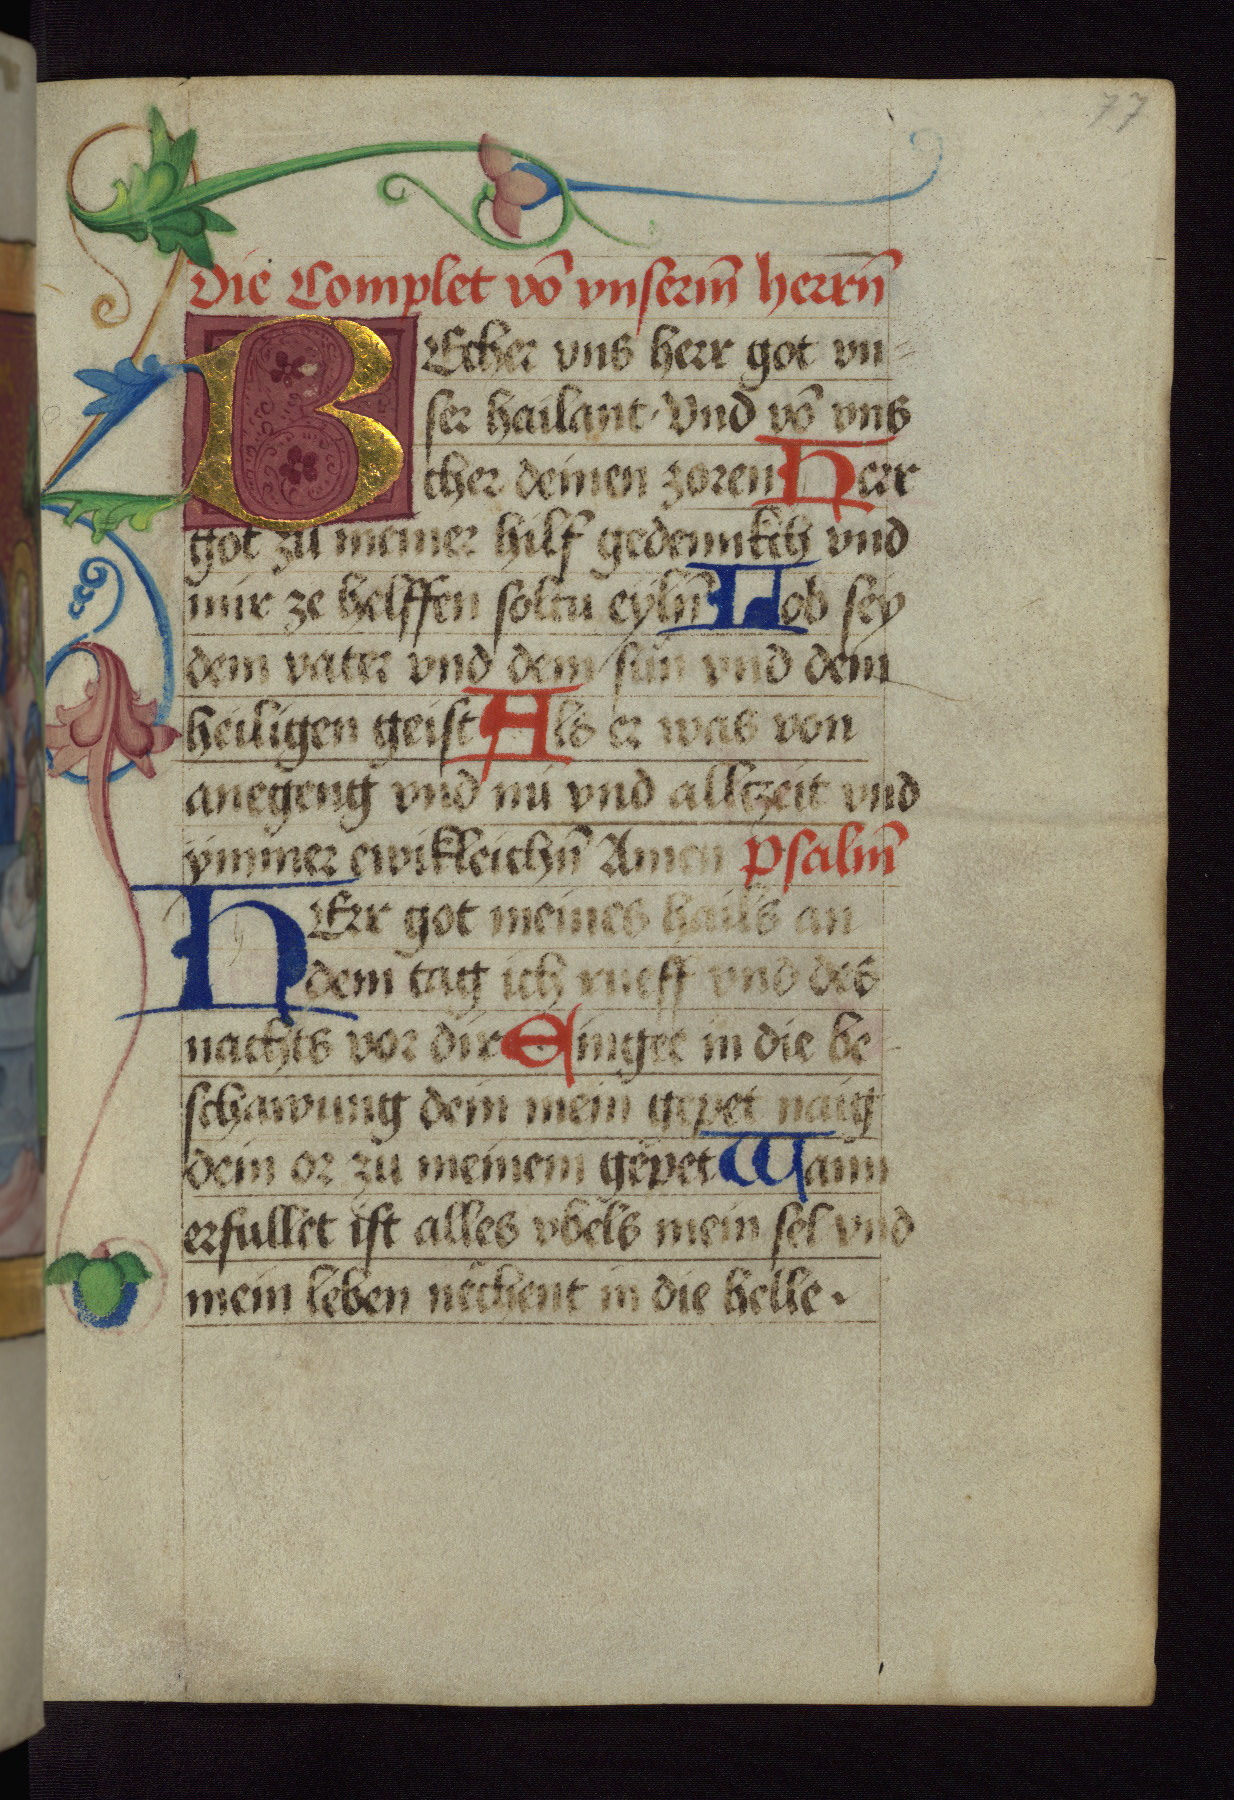 77
Die Complet vō vnserm̄ herrn̄
BEcher vns herr got vn=
ser hailant · Vnd vō vns
cher deinen zoren Herr
got zu meiner hilf gedennkch vnd
mir ze helffen soltu eyln̄ Lob sey
dem vater vnd dem sun vnd dem
heiligen geist Als er was von
anegeng vnd nu vnd allczeit vnd
ymmer ewikleichn̄ Amen Psalm̄
HErr got meines hails an
dem tag ich rueff vnd des
nachts vor dir Eingee in die be-
schawung dein mein gepet naig
dein or zu meinem gepet Wann
erfullet ist alles vbels mein sel vnd
mein leben nechent in die helle .